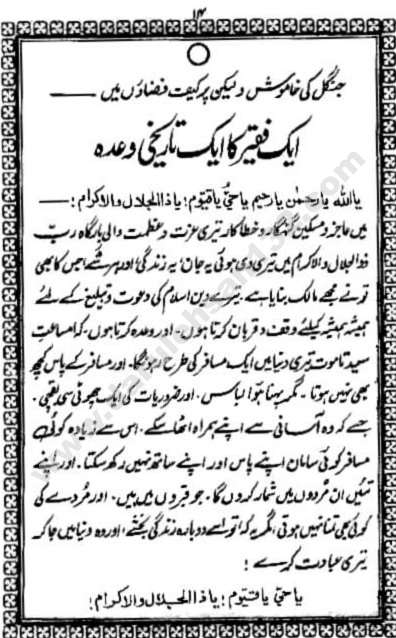 ۱۴
جنگل کی خاموش ولیکن پرکیف فضاؤں میں ——
ایک فقیر کا ایک تاریخی وعدہ
یااللہ یارحمٰن یارحیم یاحیُّ یاقیوم؛ یاذالجلال والاکرام؛ —
میں عاجز و مسکین گنہگار و خطاکار تیری عزت و عظمت والی بارگاہ ربّ
ذوالجلال والاکرام میں تیری دی ہوئی یہ جان؛ یہ زندگی؛ اور ہر شے؛ جس کا بھی
تو نے مجھے مالک بنایا ہے۔ تیرے دین اسلام کی دعوت و تبلیغ کے لئے
ہمیشہ ہمیشہ کیلئے وقف و قربان کرتا ہوں۔ اور وعدہ کرتا ہوں۔ کہ امساعت
سعید تاموت تیری دنیا میں ایک مسافر کی طرح رہونگا۔ اور مسافر کے پاس کچھ
بھی نہیں ہوتا۔ مگر پہنا ہوا لباس۔ اور ضروریات کی ایک چھوٹی سی بقچی۔
جسے کہ وہ آسانی سے اپنے ہمراہ اٹھا سکے۔ اس سے زیادہ کوئی
مسافر کوئی سامان اپنے پاس اور اپنے ساتھ نہیں رکھ سکتا۔ اور اپنے
تئیں ان مُردوں میں شمار کروں گا۔ جو قبروں میں ہیں۔ اور مُردے کی
کوئی بھی تمنا نہیں ہوتی، مگر یہ کہ تو اسے دوبارہ زندگی بخشے، اور وہ دنیا میں جا کر
تیری عبادت کرے؛
یاحیّ یاقیّوم؛ یاذالجلال والاکرام؛